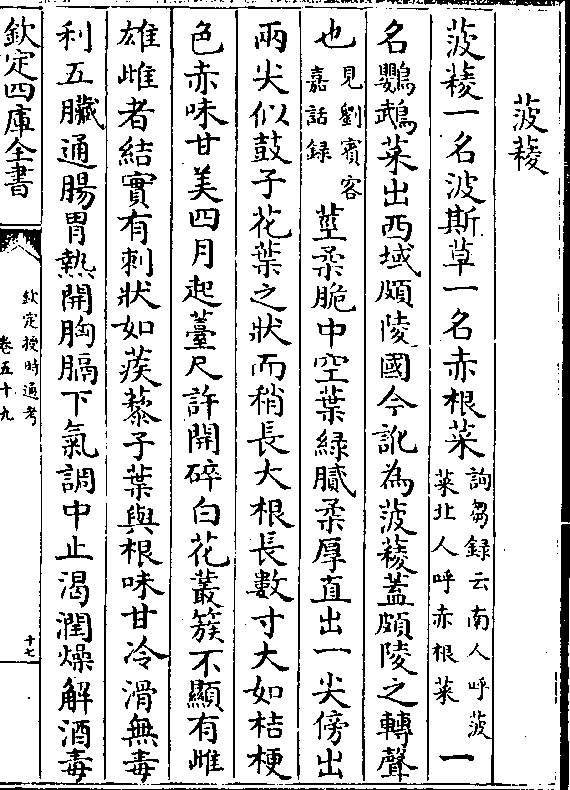 菠薐
菠薐一名波斯草一名赤根菜詢芻録云南人呼菠菜北人呼赤根菜一
名鸚鵡菜出西域頗陵國今訛為菠薐蓋頗陵之轉聲
也見劉賓客嘉話録莖柔脆中空葉綠膩柔厚直出一尖傍出
兩尖似鼓子花葉之狀而稍長大根長數寸大如桔梗
色赤味甘美四月起薹尺許開碎白花叢簇不顯有雌
雄雌者結實有刺狀如蒺藜子葉與根味甘冷滑無毒
利五臟通腸胃熱開胸膈下氣調中止渴潤燥解酒毒
欽定四庫全書
欽定授時通考
卷五十九
十七